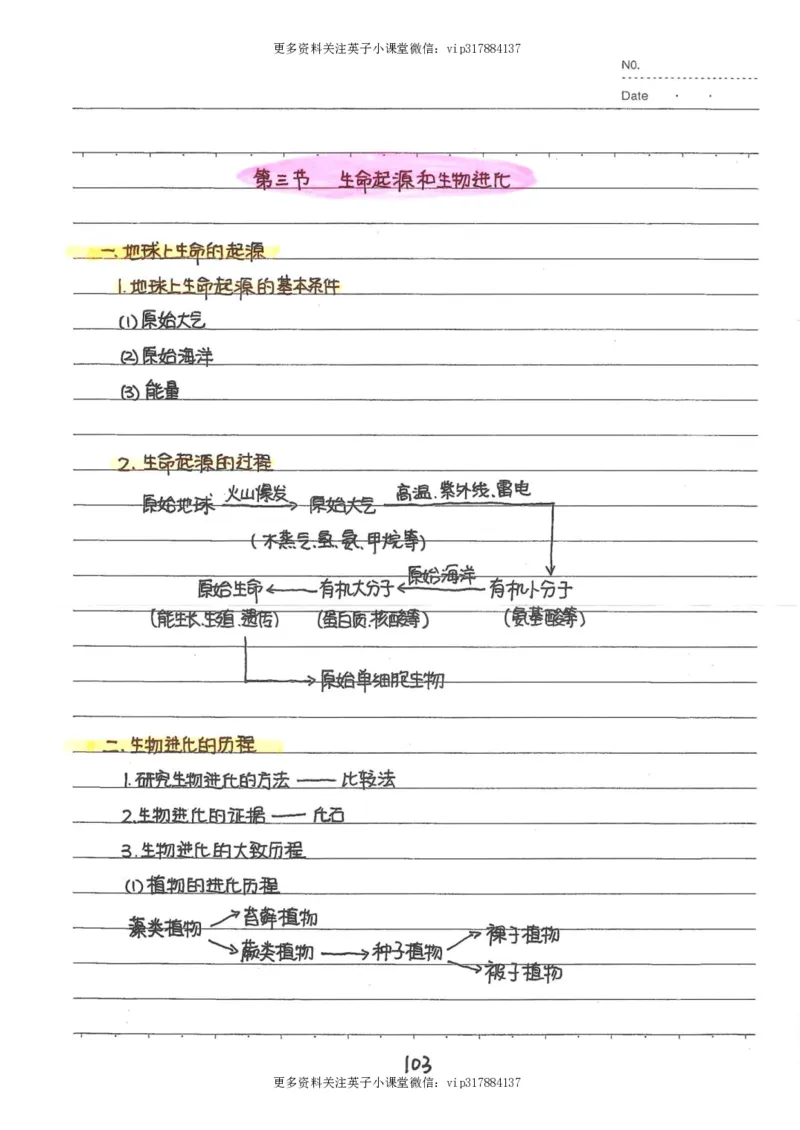 更多资料关注英子小课堂微信：vip317884137
NO.
Date · ·
第三节 生命起源和生物进化
一.地球上生命的起源
1.地球上生命起源的基本条件
(1)原始大气
(2)原始海洋
(3)能量
2.生命起源的过程
原始地球 火山爆发 原始大气 高温.紫外线.雷电
(水蒸气.氢.氨.甲烷等)
原始生命 有机大分子 原始海洋 有机小分子
(能生长.生殖.遗传) (蛋白质.核酸等) (氨基酸等)
原始单细胞生物
二.生物进化的历程
1.研究生物进化的方法——比较法
2.生物进化的证据——化石
3.生物进化的大致历程
(1)植物的进化历程
藻类植物 苔藓植物
蕨类植物 种子植物 裸子植物
被子植物
103
更多资料关注英子小课堂微信：vip317884137